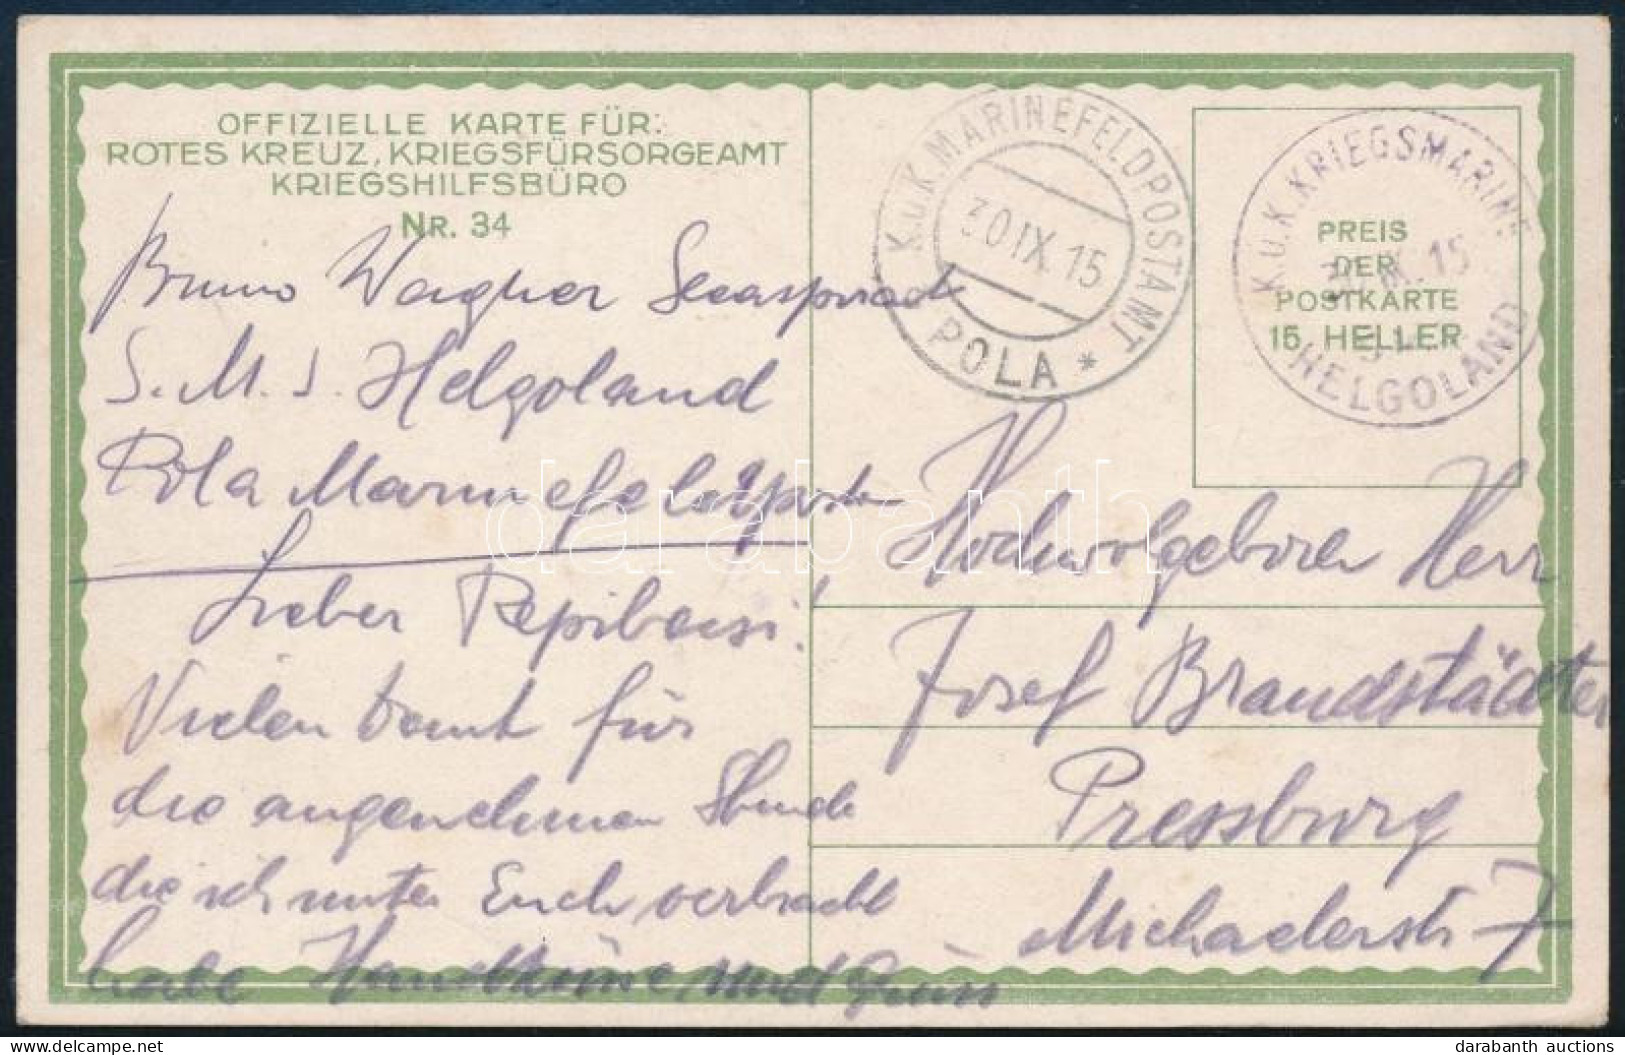 OFFIZIELLE KARTE FÜR:
ROTES KREUZ, KRIEGSFÜRSORGEAMT
KRIEGSHILFSBÜRO
NR. 34
Bruno Wagner
S.M.S. Helgoland
Pola Marinefeldpost
Lieber
Vielen Dank für
die angenehmen Stunde
die ich unter Euch verbracht
habe Handküsse und Gruss
K.u.K. MARINEFELDPOSTAMT
30 IX. 15
POLA *
K.u.K. KRIEGSMARINE
15
HELGOLAND
PREIS
DER
POSTKARTE
15 HELLER
Hochwolgeboren Herr
Josef Brandstädter
Pressburg
Michaelerstr 7
darabanth
darabanth auctions